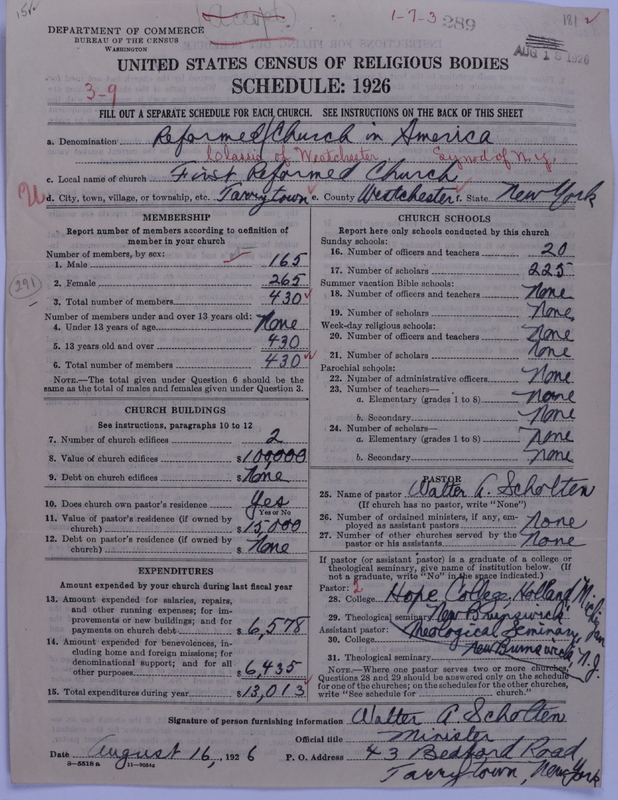 15w
(Accept)
1-7-3
289
181
DEPARTMENT OF COMMERCE
BUREAU OF THE CENSUS
WASHINGTON
AUG 18 1926
UNITED STATES CENSUS OF RELIGIOUS BODIES
SCHEDULE: 1926
3-9
FILL OUT A SEPARATE SCHEDULE FOR EACH CHURCH. SEE INSTRUCTIONS ON THE BACK OF THIS SHEET
a. Denomination Reformed Church in America
Classis of Westchester Synod of N.Y.
c. Local name of church First Reformed Church
U d. City, town, village, or township, etc. Tarrytown e. County Westchester f. State New York
MEMBERSHIP
Report number of members according to definition of member in your church
Number of members, by sex:
1. Male 165
2. Female 265
3. Total number of members 430
291
Number of members under and over 13 years old:
4. Under 13 years of age None
5. 13 years old and over 430
6. Total number of members 430
NOTE.—The total given under Question 6 should be the same as the total of males and females given under Question 3.
CHURCH BUILDINGS
See instructions, paragraphs 10 to 12
7. Number of church edifices 2
8. Value of church edifices $100,000
9. Debt on church edifices $None
10. Does church own pastor's residence Yes
Yes or No
11. Value of pastor's residence (if owned by church) $15,000
12. Debt on pastor's residence (if owned by church) $None
EXPENDITURES
Amount expended by your church during last fiscal year
13. Amount expended for salaries, repairs, and other running expenses; for improvements or new buildings; and for payments on church debt $6,578
14. Amount expended for benevolences, including home and foreign missions; for denominational support; and for all other purposes $6,435
15. Total expenditures during year $13,013
CHURCH SCHOOLS
Report here only schools conducted by this church
Sunday schools:
16. Number of officers and teachers 20
17. Number of scholars 225
Summer vacation Bible schools:
18. Number of officers and teachers None
19. Number of scholars None
Week-day religious schools:
20. Number of officers and teachers None
21. Number of scholars None
Parochial schools:
22. Number of administrative officers None
23. Number of teachers—
a. Elementary (grades 1 to 8) None
b. Secondary None
24. Number of scholars—
a. Elementary (grades 1 to 8) None
b. Secondary None
PASTOR
25. Name of pastor Walter A. Scholten
(If church has no pastor, write "None")
26. Number of ordained ministers, if any, employed as assistant pastors None
27. Number of other churches served by the pastor or his assistants None
If pastor (or assistant pastor) is a graduate of a college or theological seminary, give name of institution below. (If not a graduate, write "No" in the space indicated.)
Pastor: 2
28. College Hope College, Holland, Michigan
29. Theological seminary New Brunswick
Assistant pastor: Theological Seminary,
30. College New Brunswick, N.J.
31. Theological seminary
NOTE.—Where one pastor serves two or more churches, Questions 28 and 29 should be answered only on the schedule for one of the churches; on the schedules for the other churches, write "See schedule for ........ church."
Signature of person furnishing information Walter A. Scholten
Official title Minister
Date August 16, 1926 P. O. Address 43 Bedford Road
8-5518 a 11-9054a
Tarrytown, New York